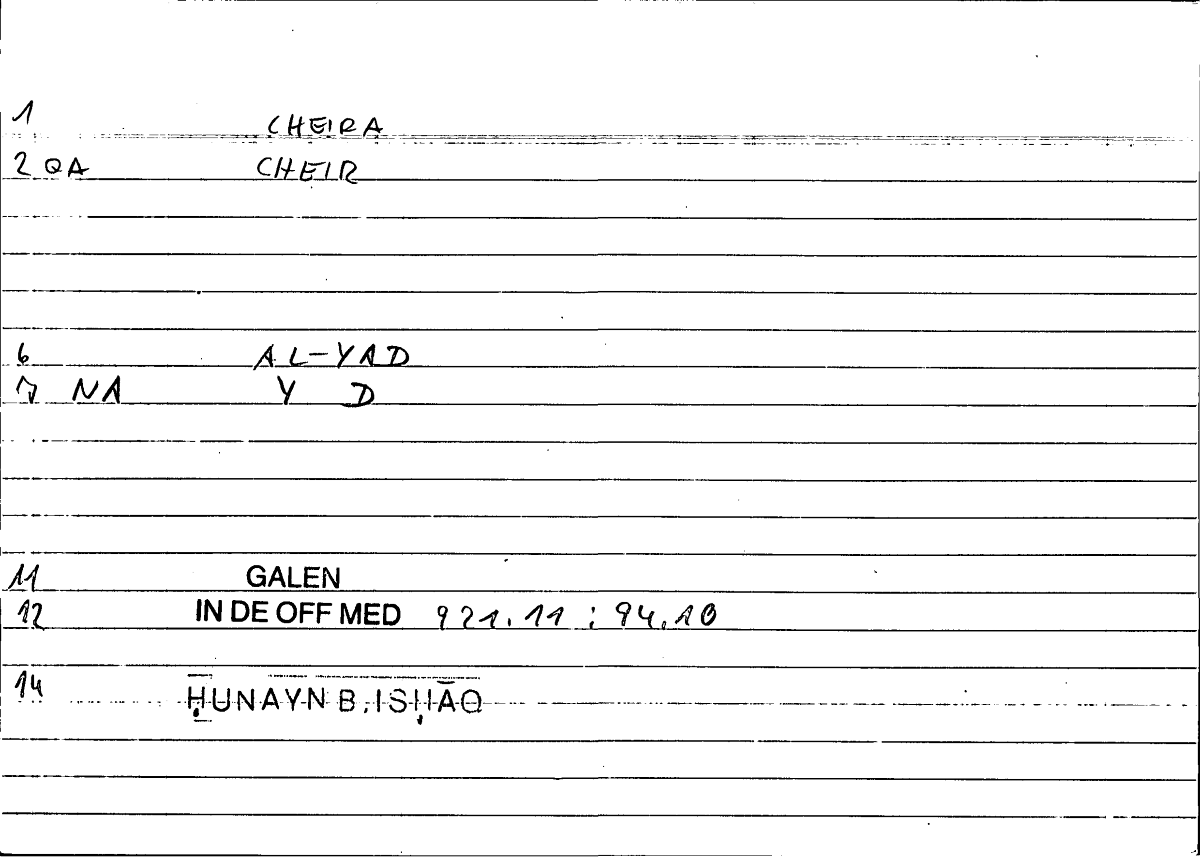 1 CHEIRA
2 QA CHEIR
6 AL-YAD
7 NA Y D
11 GALEN
12 IN DE OFF MED 921.11 : 94.10
14 ḤUNAYN B. ISḤĀQ